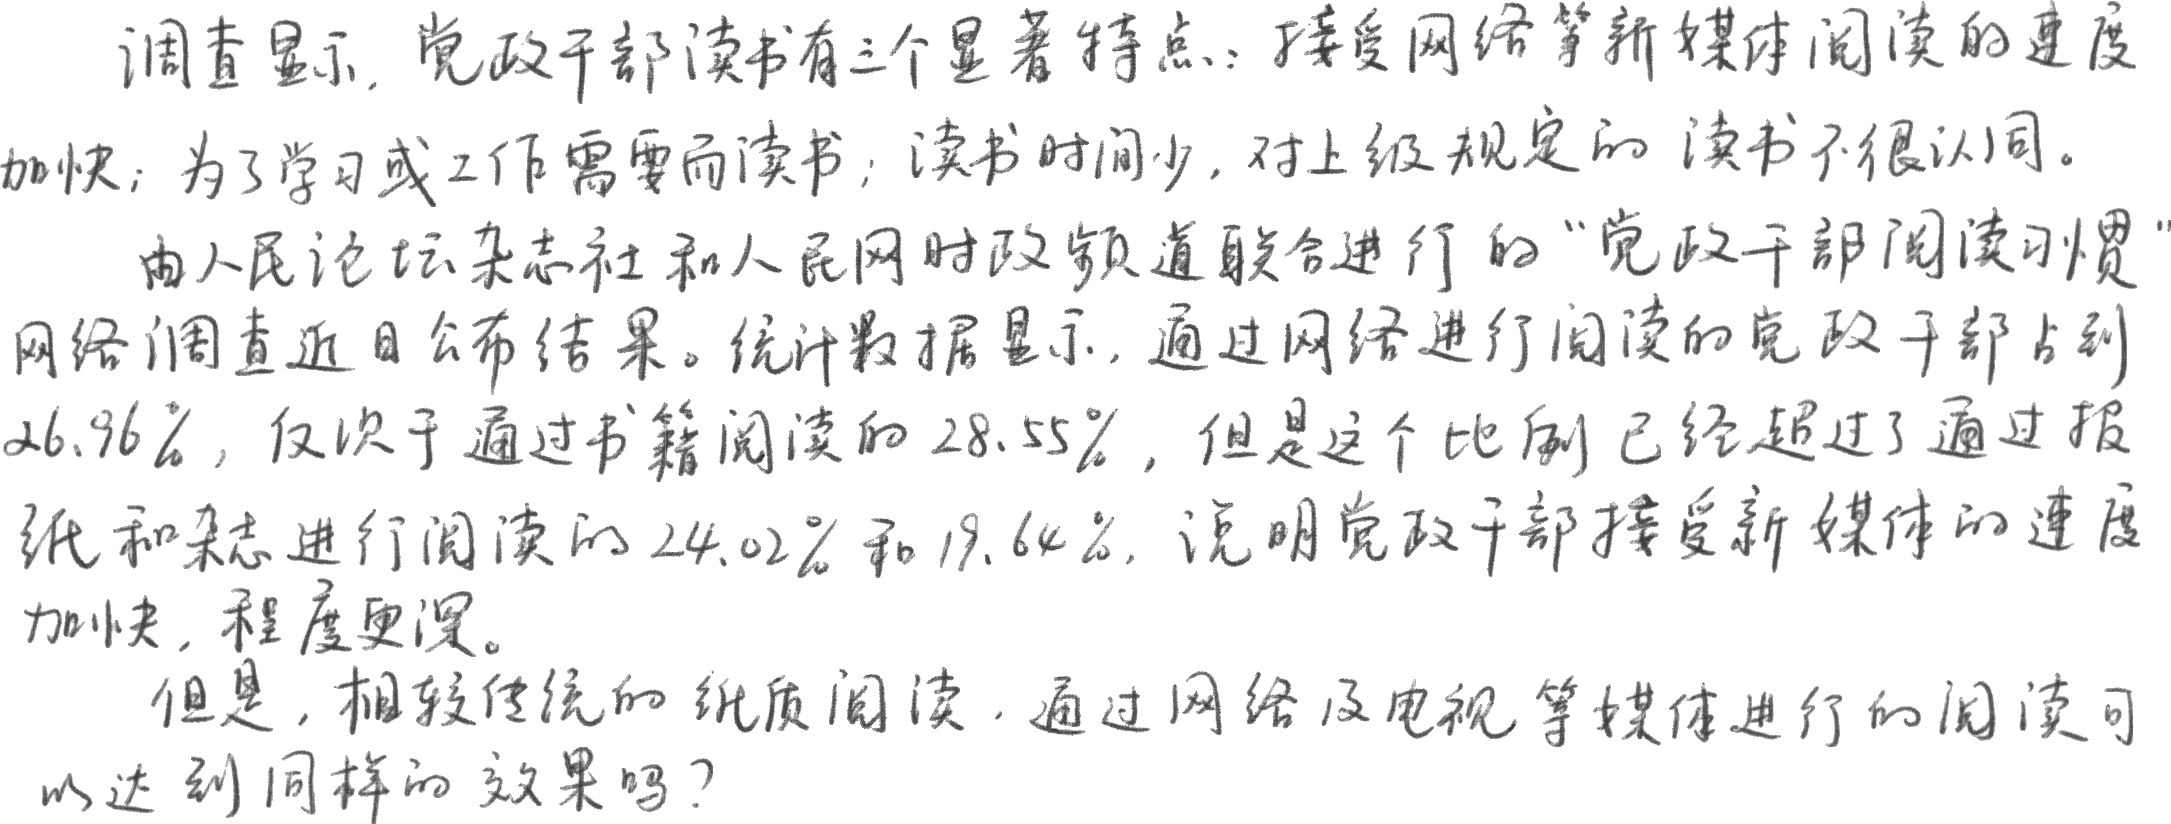 调查显示,党政干部读书有三个显著特点:接受网络等新媒体阅读的速度
加快;为了学习或工作需要而读书;读书时间少,对上级规定的读书不很认同。
由人民论坛杂志社和人民网时政频道联合进行的“党政干部阅读习惯”
网络调查近日公布结果。统计数据显示,通过网络进行阅读的党政干部占到
26.96%,仅次于通过书籍阅读的28.55%,但是这个比例已经超过了通过报
纸和杂志进行阅读的24.02%和19.64%,说明党政干部接受新媒体的速度
加快,程度更深。
但是,相较传统的纸质阅读,通过网络及电视等媒体进行的阅读可
以达到同样的效果吗?